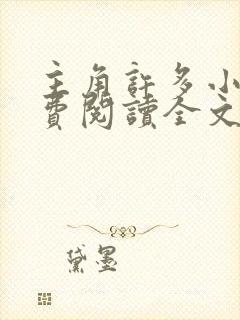 主角許多小
費閱讀全文
黛墨